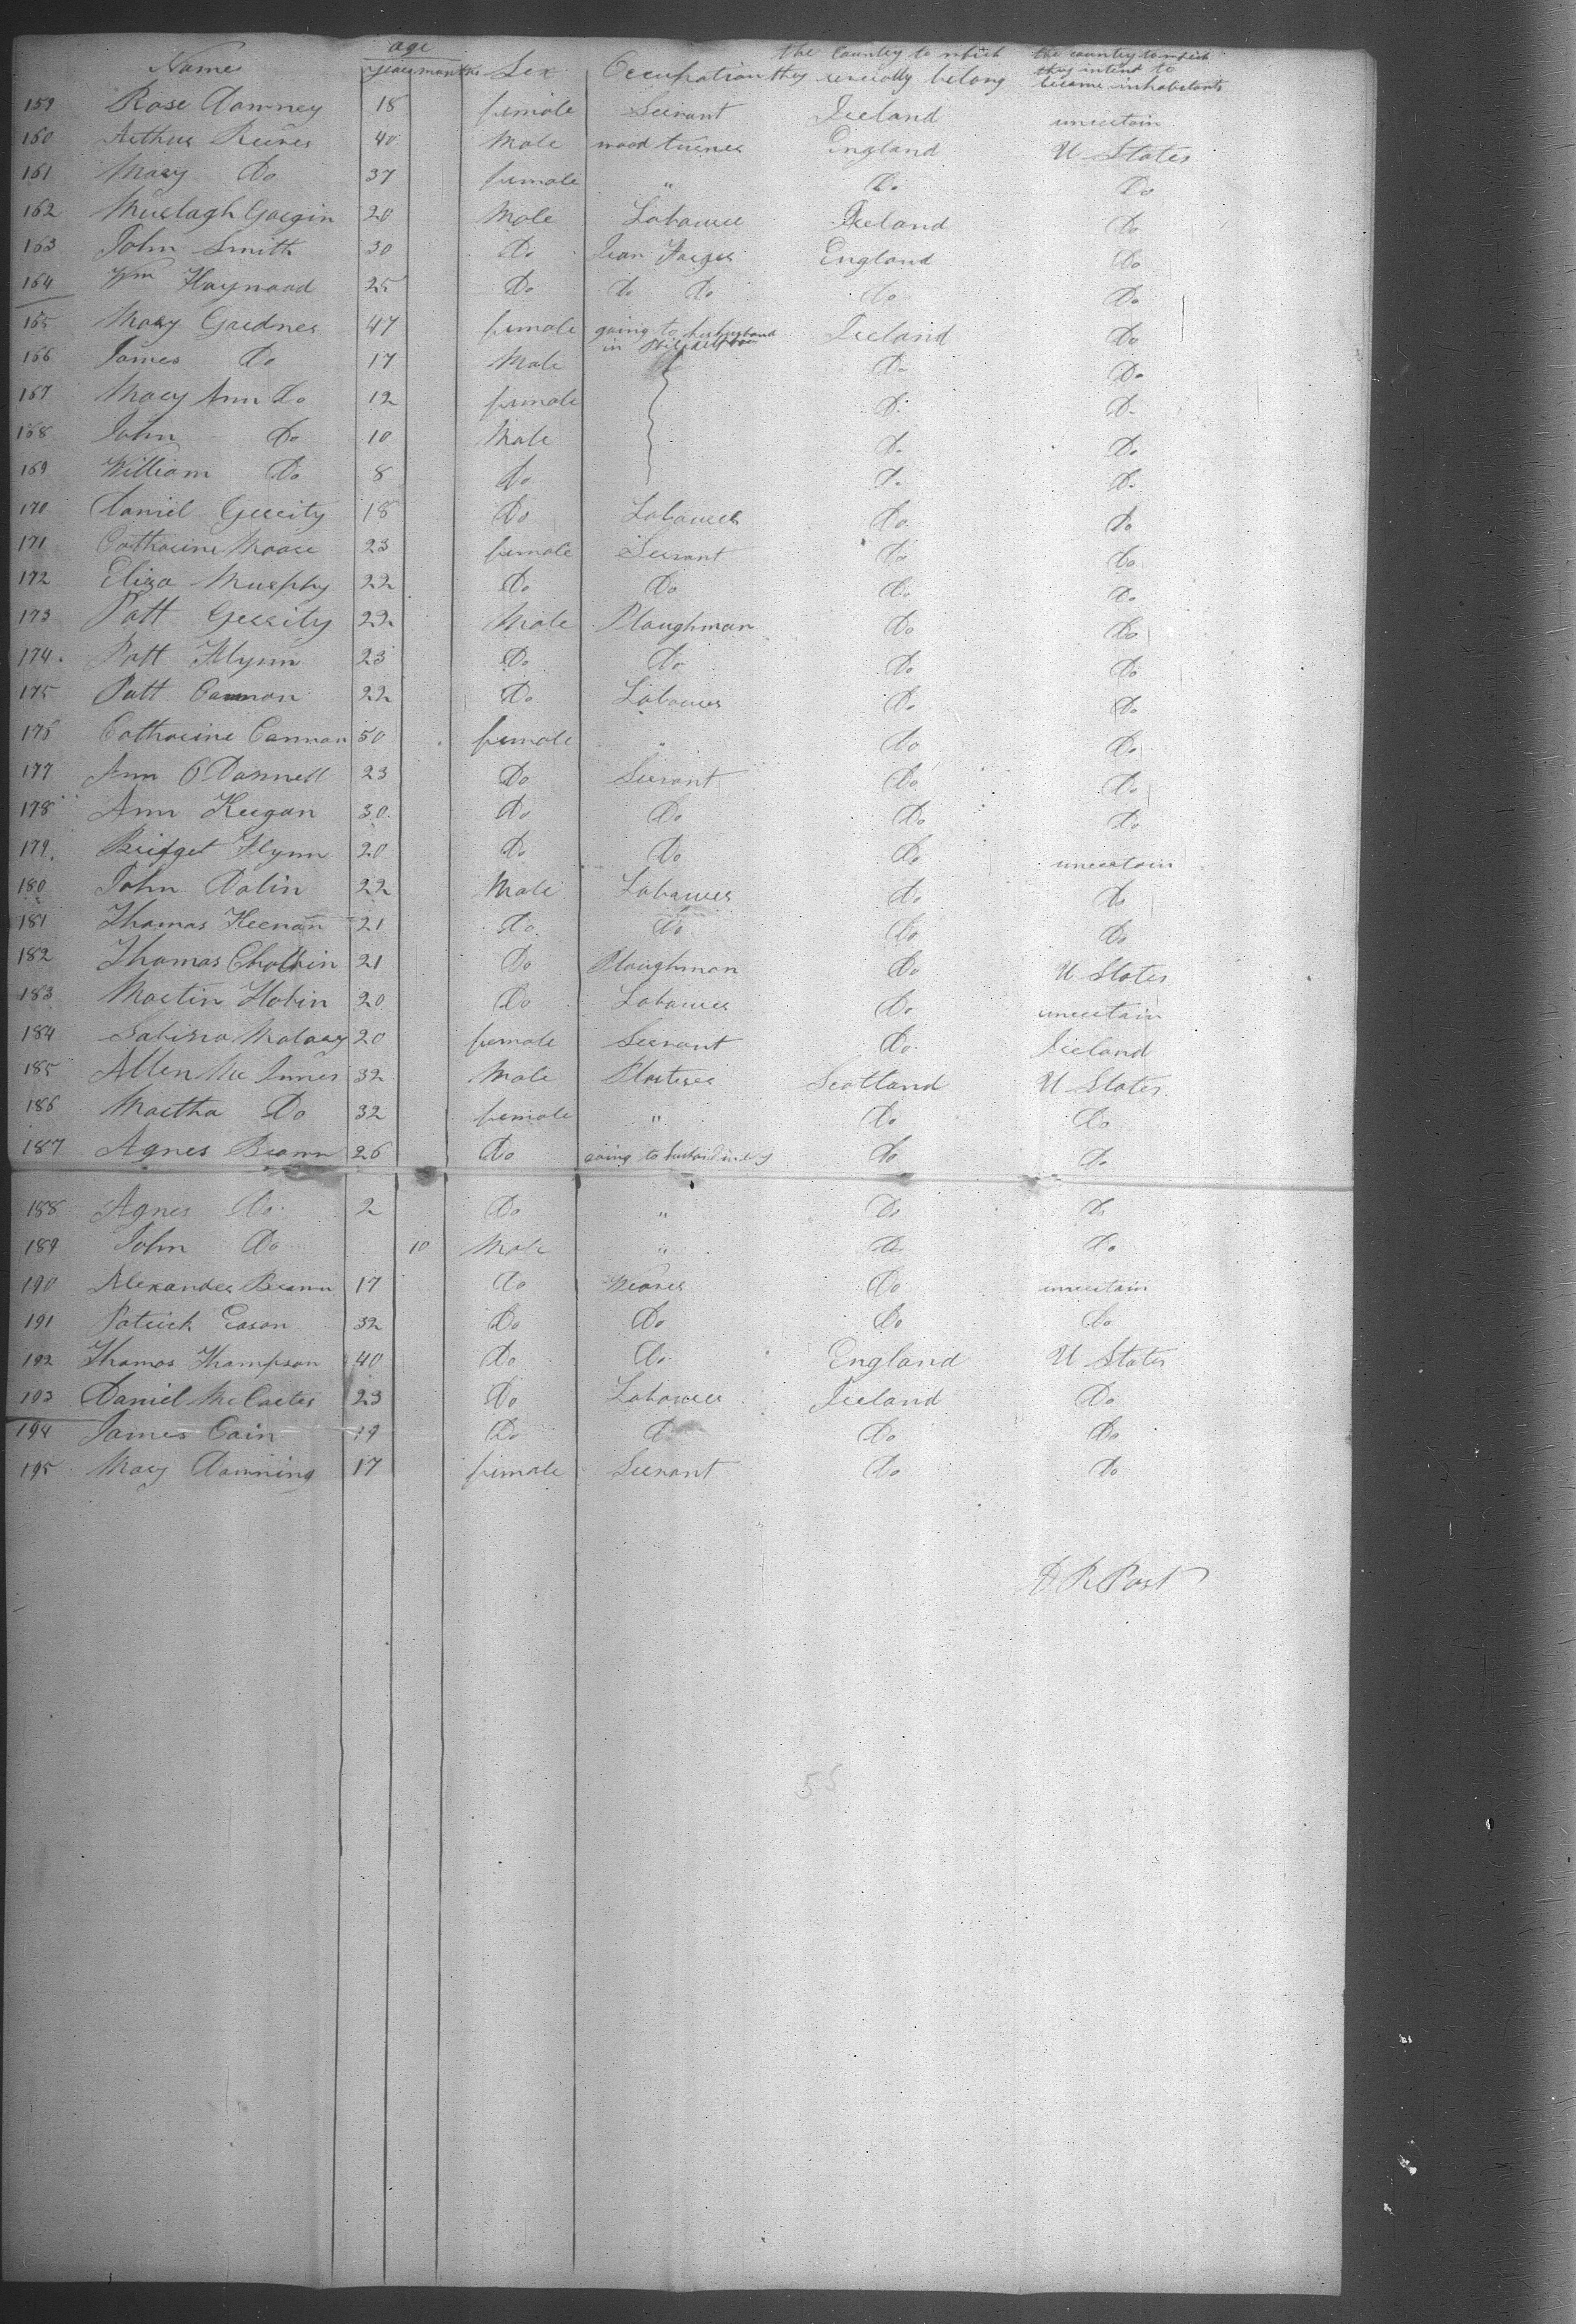 Names age years months Sex Occupation the Country to which they severally belong the country to which they intend to become inhabitants
159 Rose Downey 18 female Servant Ireland uncertain
160 Arthur Reeves 40 Male wood turner England U States
161 Mary Do 37 female " Do Do
162 Murtagh Gargin 20 Male Labourer Ireland Do
163 John Smith 30 Do Iron Forger England Do
164 Wm Haywood 25 Do Do Do Do Do
165 Mary Gardner 47 female going to her husband in Ireland Do
166 James Do 17 Male Do Do
167 Mary Ann Do 12 female Do Do
168 John Do 10 Male Do Do
169 William Do 8 Do Do Do
170 Daniel Gerrity 18 Do Labourer Do Do
171 Catharine Moore 23 female Servant Do Do
172 Eliza Murphy 22 Do Do Do Do
173 Patt Gerrity 22 Male Ploughman Do Do
174 Patt Flynn 23 Do Do Do Do
175 Patt Cannon 22 Do Labourer Do Do
176 Catharine Cannon 50 female " Do Do
177 Ann O'Donnell 23 Do Servant Do Do
178 Ann Keegan 30 Do Do Do Do
179 Bridget Flynn 20 Do Do Do uncertain
180 John Dolin 22 Male Labourer Do Do
181 Thomas Keenan 21 Do Do Do Do
182 Thomas 21 Do Ploughman Do U States
183 Martin Hobin 20 Do Labourer Do uncertain
184 Sabina 20 female Servant Do Ireland
185 Allen Mc Innes 32 Male Plasterer Scotland U States
186 Martha Do 32 female " Do Do
187 Agnes Brown 26 Do going to Do Do
188 Agnes Do 2 Do " Do Do
189 John Do 10 Male " Do Do
190 Alexander Brown 17 Do Weaver Do uncertain
191 Patrick Eason 32 Do Do Do Do
192 Thomas Thompson 40 Do Do England U States
193 Daniel McCarter 23 Do Labourer Ireland Do
194 James Cain 19 Do Do Do Do
195 Mary Downing 17 female Servant Do Do
D R Post
55